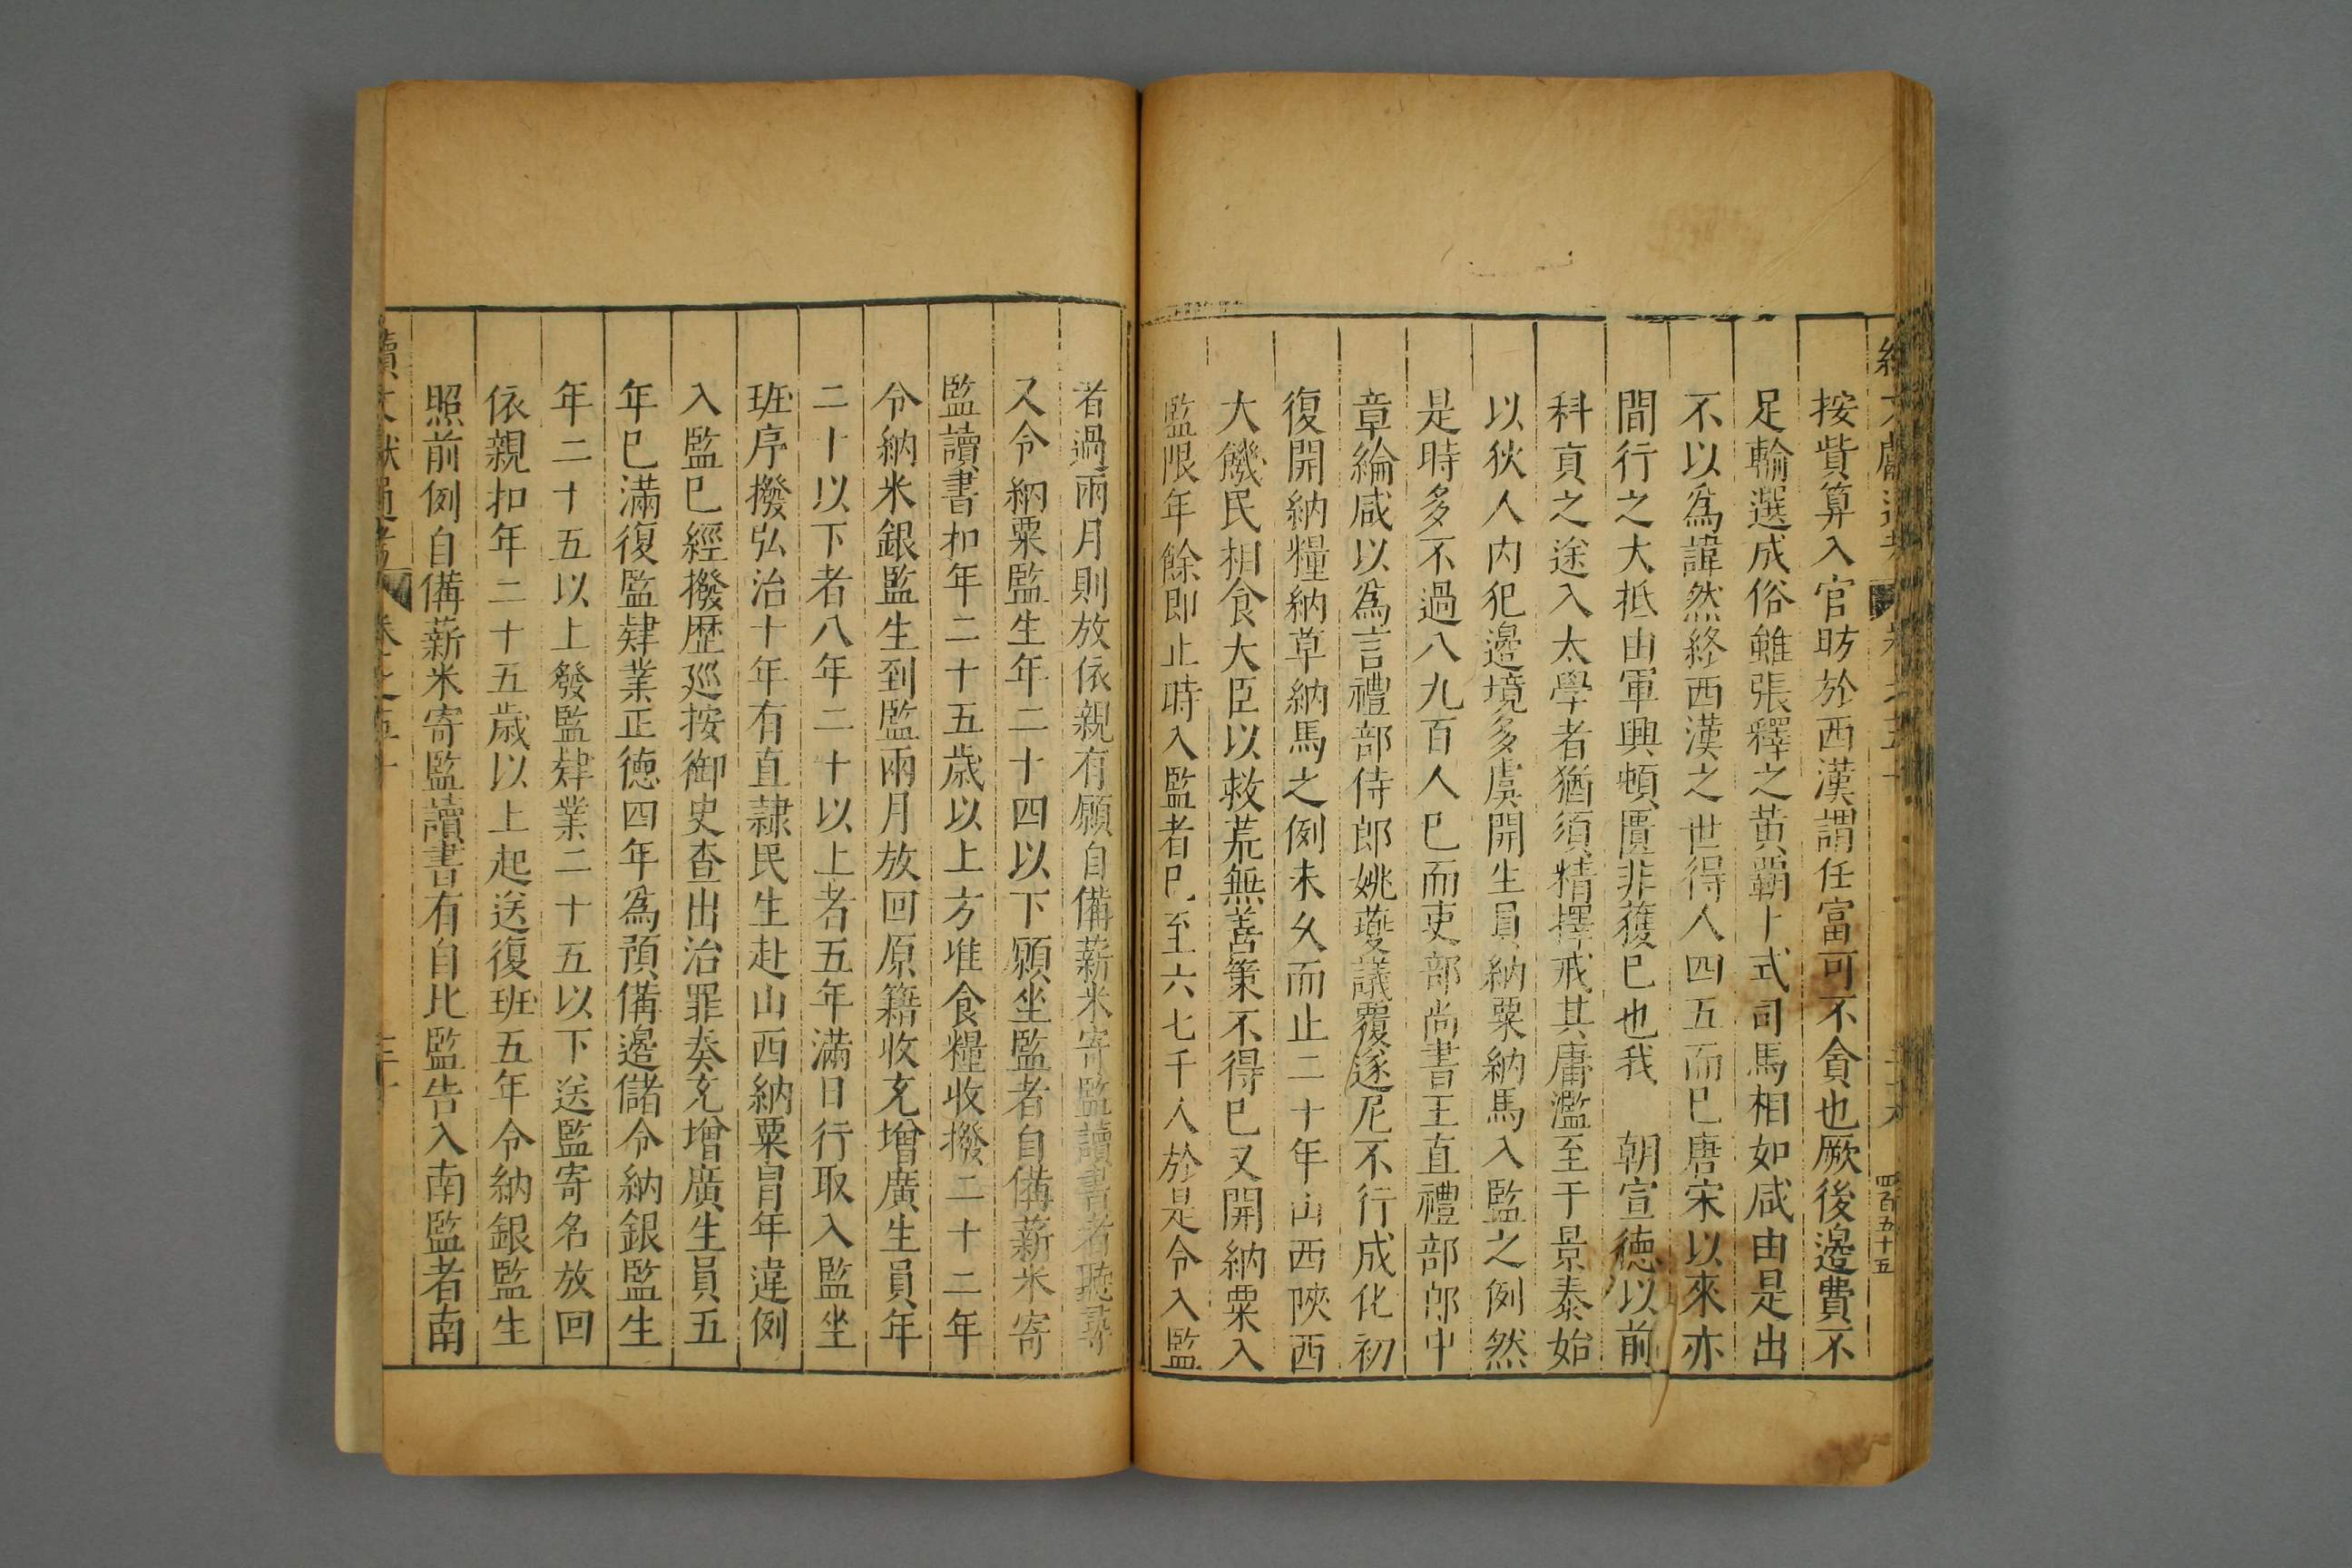 四百五十五
按貲算入官昉於西漢謂任富可不貪也厥後邊費不
足輪選成俗雖張釋之黃霸卜式司馬相如咸由是出
不以為諱然終西漢之世得人四五而已唐宋以來亦
間行之大抵由軍興頓匱非獲已也我 朝宣德以前
科貢之途入太學者猶須精擇戒其庸濫至于景泰始
以狄人内犯邊境多虞開生員納粟納馬入監之例然
是時多不過八九百人已而吏部尚書王直禮部郎中
章綸咸以為言禮部侍郎姚夔議覆遂尼不行成化初
復開納糧納草納馬之例未久而止二十年山西陜西
大饑民相食大臣以救荒無善策不得已又開納粟入
監限年餘即止時入監者已至六七千人於是令入監
者過兩月則放依親有願自備薪米寄監讀書者聽尋
又令納粟監生年二十四以下願坐監者自備薪米寄
監讀書扣年二十五歲以上方准食糧收撥二十二年
令納米銀監生到監兩月放回原籍收充增廣生員年
二十以下者八年二十以上者五年滿日行取入監坐
班序撥弘治十年有直隸民生赴山西納粟冐年違例
入監已經撥歷廵按御史查出治罪奏充增廣生員五
年已滿復監肄業正德四年為預備邊儲令納銀監生
年二十五以上發監肄業二十五以下送監寄名放回
依親扣年二十五歲以上起送復班五年令納銀監生
照前例自備薪米寄監讀書有自比監告入南監者南